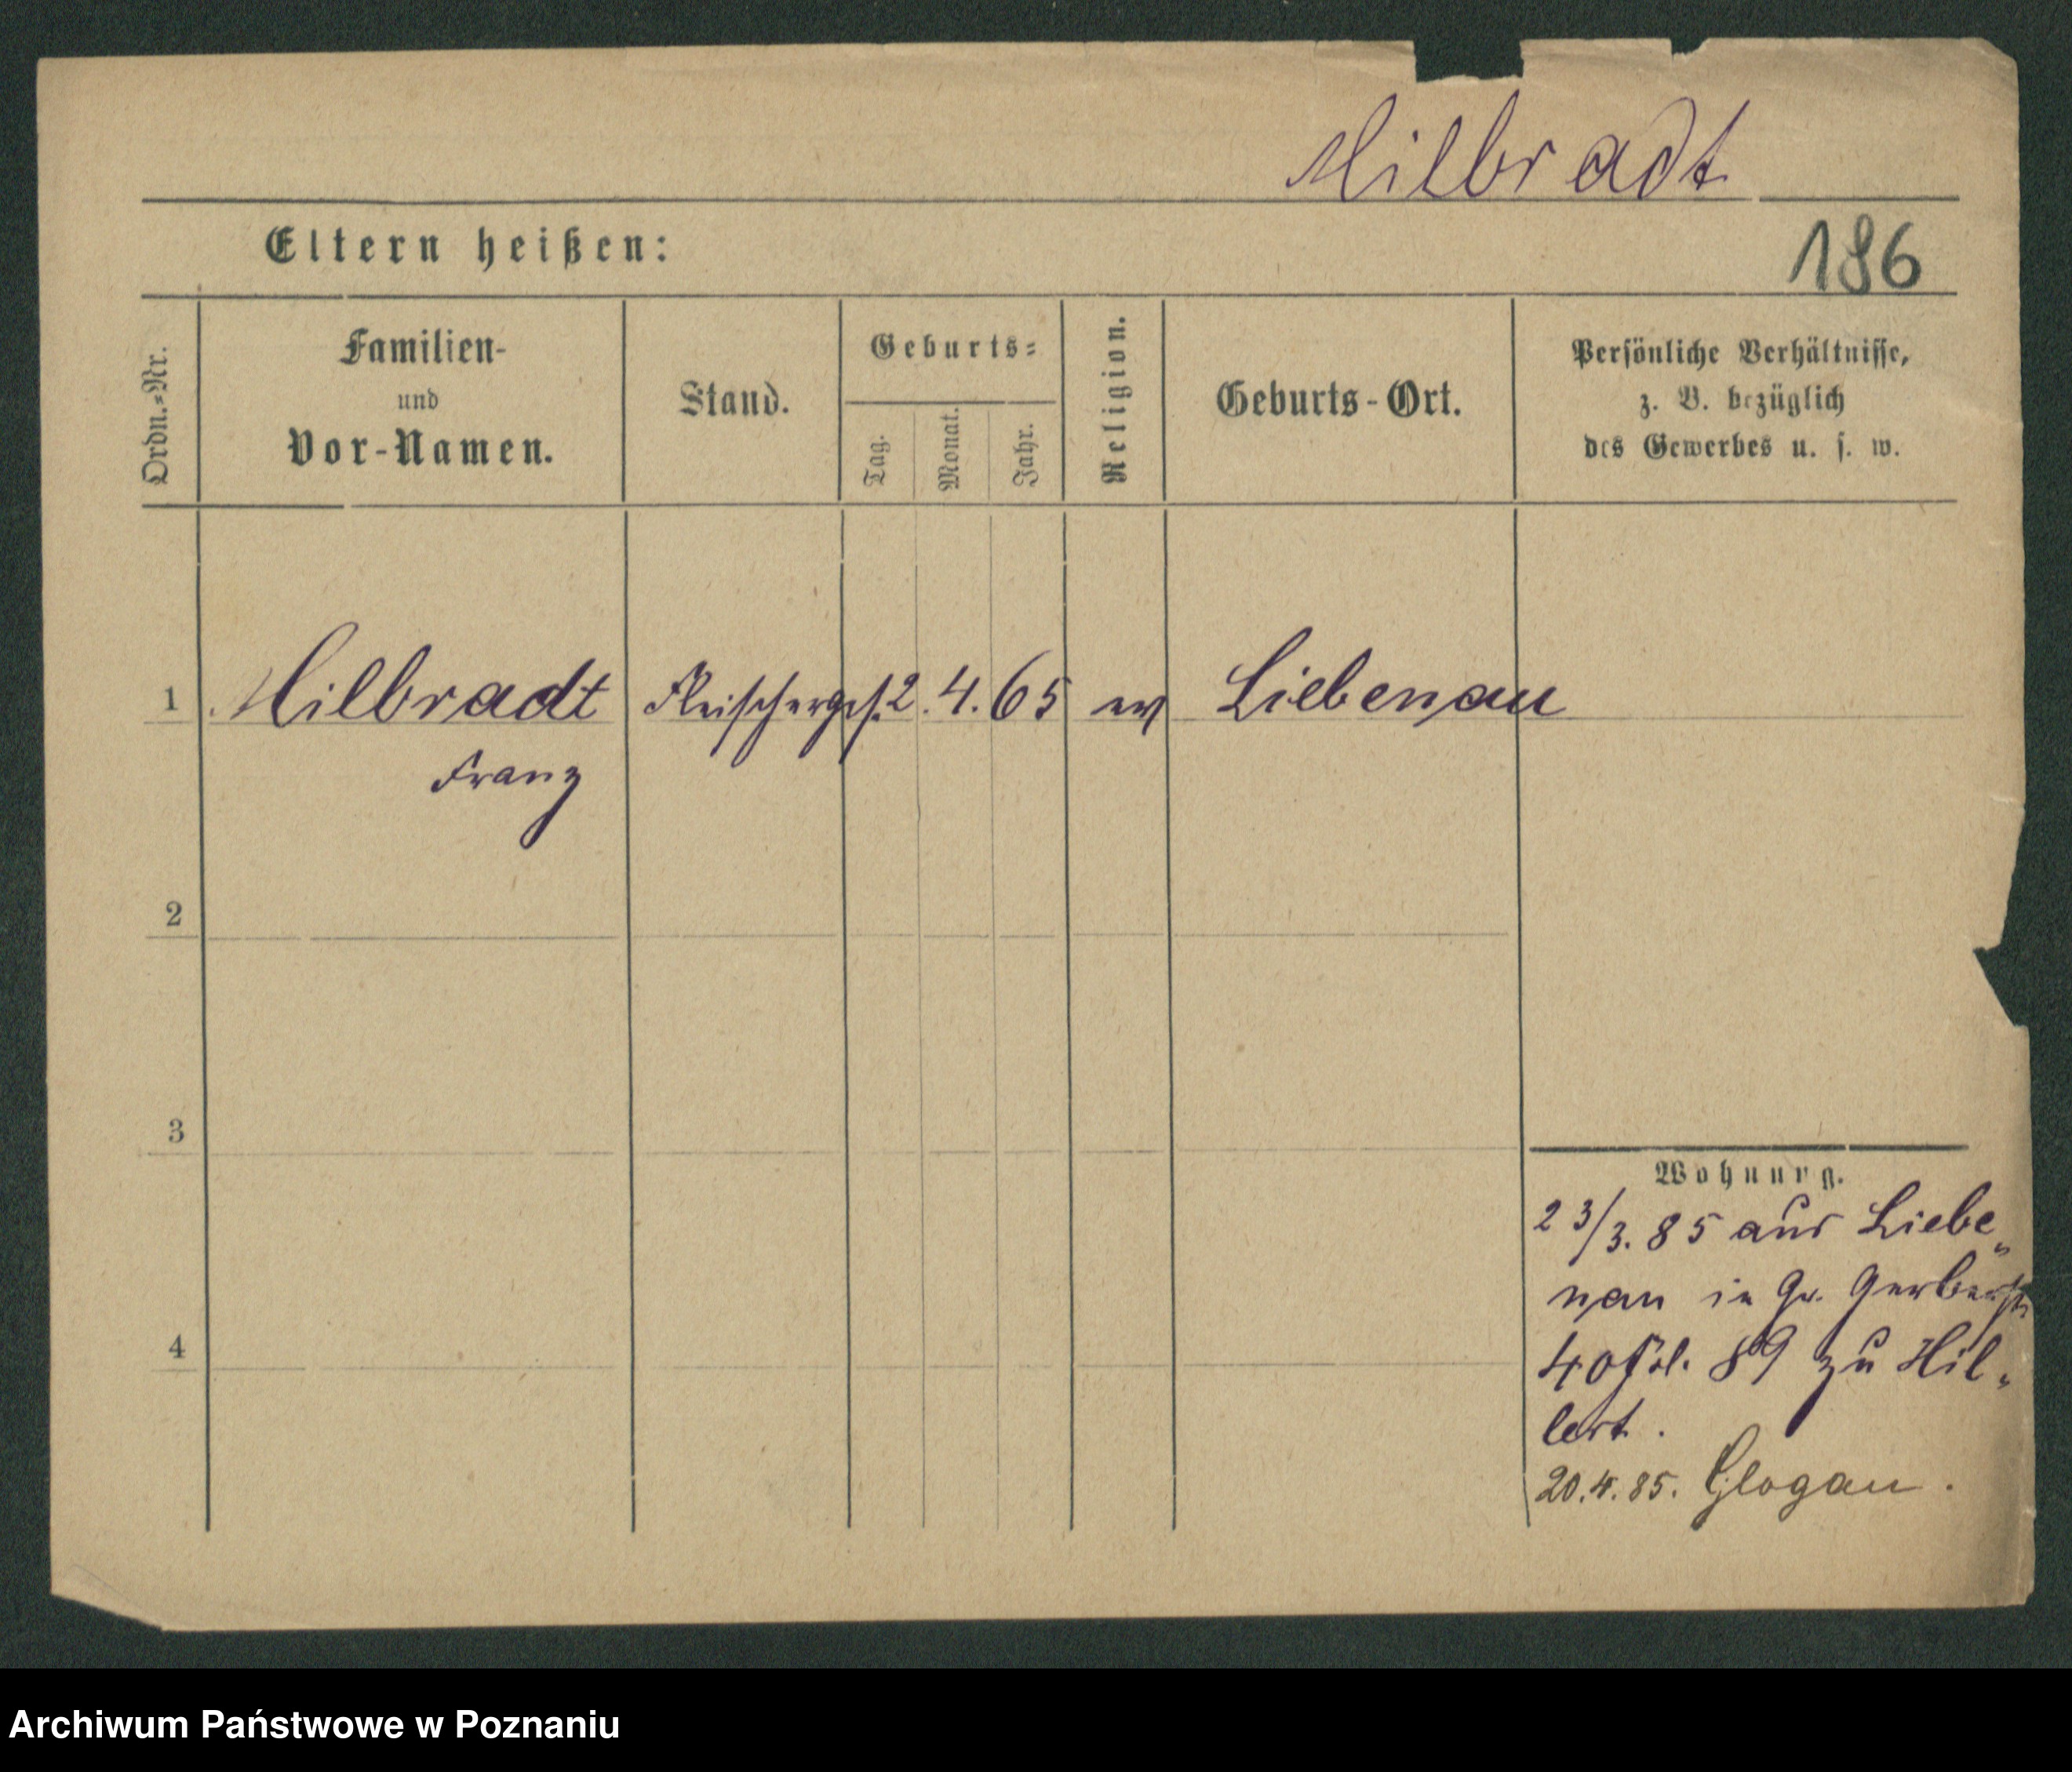 Milbradt
Eltern heißen:
186
Ordn.=Nr.
Familien-
und
Vor-Namen.
Stand.
Geburts=
Tag.
Monat.
Jahr.
Religion.
Geburts-Ort.
Persönliche Verhältnisse,
z. B. bezüglich
des Gewerbes u. s. w.
1 Milbradt Fleischerges. 2. 4. 65 ev Liebenau
Franz
2
3
4
Wohnung.
23/3. 85 aus Liebe„
nau in Gr. Gerberst
40 89 zu Hil„
lert.
20.4.85. Glogau.
Archiwum Państwowe w Poznaniu